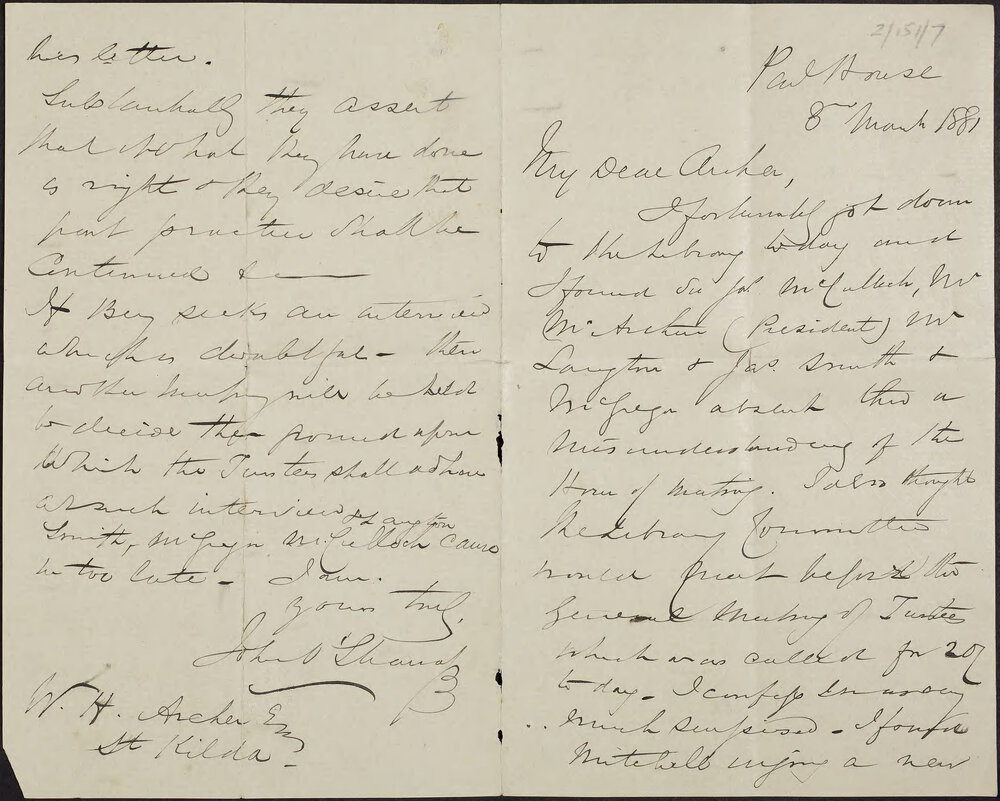 2/151/7
Parl House
8 March 1881
My Dear Archer,
I fortunately got down
to the Library today and
I found Sir Jas McCulloch, Mr
McArthur (President) Mr
Langton & Jas. Smith &
McGregor absent thro a
misunderstanding of the
Hour of Meeting. I also thought
the Library Committee
would meet before the
General Meeting of Trustees
which was called for
to day - I confess I was very
much surprised - I found
Mitchell urging a new
his letter.
Substantially they assert
that what they have done
is right & they desire that
past practice shall be
Continued &c
If Berry seeks an interview
which is doubtful - then
another meeting will be held
to decide the ground upon
Which the Trustees shall adhere
at such interview
Smith, McGregor McCulloch & Langton came
in too late - I am.
yours truly,
John O'Shanassy
W. H. Archer Esq
St Kilda -